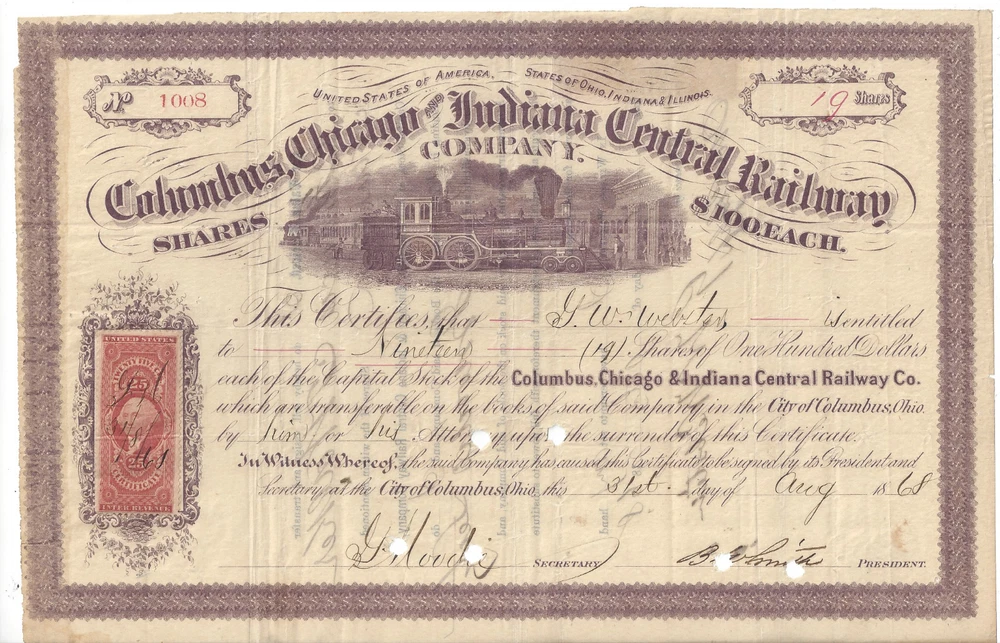 Nº 1008
19 Shares
UNITED STATES OF AMERICA, STATES OF OHIO, INDIANA & ILLINOIS.
Columbus, Chicago AND Indiana Central Railway
COMPANY.
SHARES $100, EACH.
This Certifies, that G. W. Webster is entitled
to Nineteen (19) Shares of One Hundred Dollars
each of the Capital Stock of the Columbus, Chicago & Indiana Central Railway Co.
which are transferable on the books of said Company in the City of Columbus, Ohio.
by him or his Attorney upon the surrender of this Certificate.
In Witness Whereof, the said Company has caused this Certificate to be signed by its President and
Secretary, at the City of Columbus, Ohio, this 31st day of Aug 1868
G Moodie SECRETARY B. E. Smith PRESIDENT.
UNITED STATES
TWENTY FIVE
25
25
CERTIFICATE
INTER. REVENUE